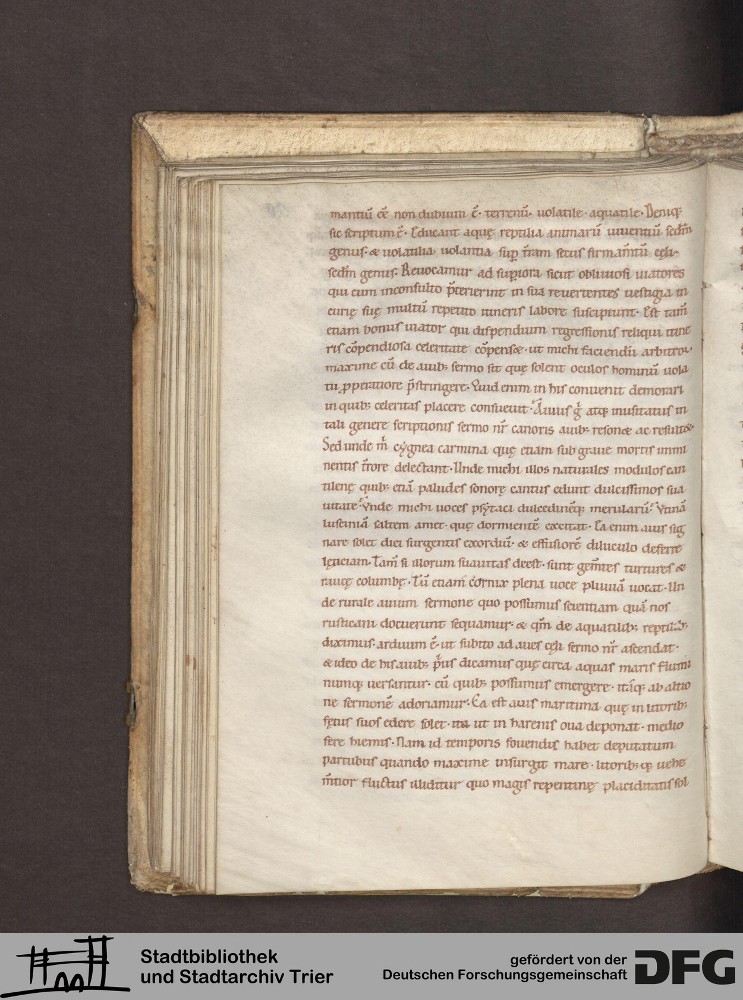 mantiū eē non dubium ē· terrenū· uolatile· aquatile· Deniq;
sic scriptum ē· Educant aquę reptilia animarū uiuentiū sedm̄
genus· & uolatilia uolantia sup̄ t̄ram secus firmam̄tū cęli·
sedm̄ genus· Reuocamur ad sup̄iora sicut obliuiosi uiatores
qui cum inconsulto p̄terierint in sua reuertentes uestigia in
curię suę multū repetito itineris labore suscipiunt· Est tam̄
etiam bonus uiator qui dispendium regressionis reliqui itine
ris cōpendiosa celeritate cōpenset· ut michi faciendū arbitror
maxime cū de auib; sermo sit quę solent oculos hominū uola
tu ꝓperatiore p̄stringere· Quid enim in his conuenit demorari
in quib; celeritas placere consueuit· Auius g̊ atq; inusitatus in
tali genere scriptionis sermo nr̄ canoris auib; resonet ac resultet
Sed unde m̄ cygnea carmina quę etiam sub graue mortis immi
nentis t̄rore delectant· Unde michi illos naturales modulos can
tilenę quib; etiā paludes sonorę cantus edunt dulcissimos sua
uitate· Vnde michi uoces psytaci dulcedinēq; merularū· Vtinā
lusciniā saltem amet· quę dormientē excitat· Ea enim auis sig
nare solet diei surgentis exordiū· & effusiorē diluculo deferre
lęticiam· Tam̄ si illorum suauitas deest· sunt gem̄tes turtures &
raucę columbę· Tū etiam cornix plena uoce pluuiā uocat· Un
de rurale auium sermone quo possumus scientiam quā nos
rusticani docuerunt sequamur· & qm̄ de aquatilib; reptilib;
diximus· arduum ē· ut subito ad aues cęli sermo nr̄ ascendat·
& ideo de his auib; p̄us dicamus quę circa aquas maris flumi
numq; uersantur· cū quib; possumus emergere· itaq; ab altio
ne sermonē adoriamur· Ea est auis maritima quę in litorib;
fętus suos edere solet· ita ut in harenis oua deponat· medio
fere hiemis· Nam id temporis fouendis habet deputatum
partubus quando maxime insurgit mare· litorib; q; uehe
m̄tior fluctus illiditur quo magis repentinę placiditatis sol
Stadtbibliothek
und Stadtarchiv Trier
gefördert von der
Deutschen Forschungsgemeinschaft
DFG